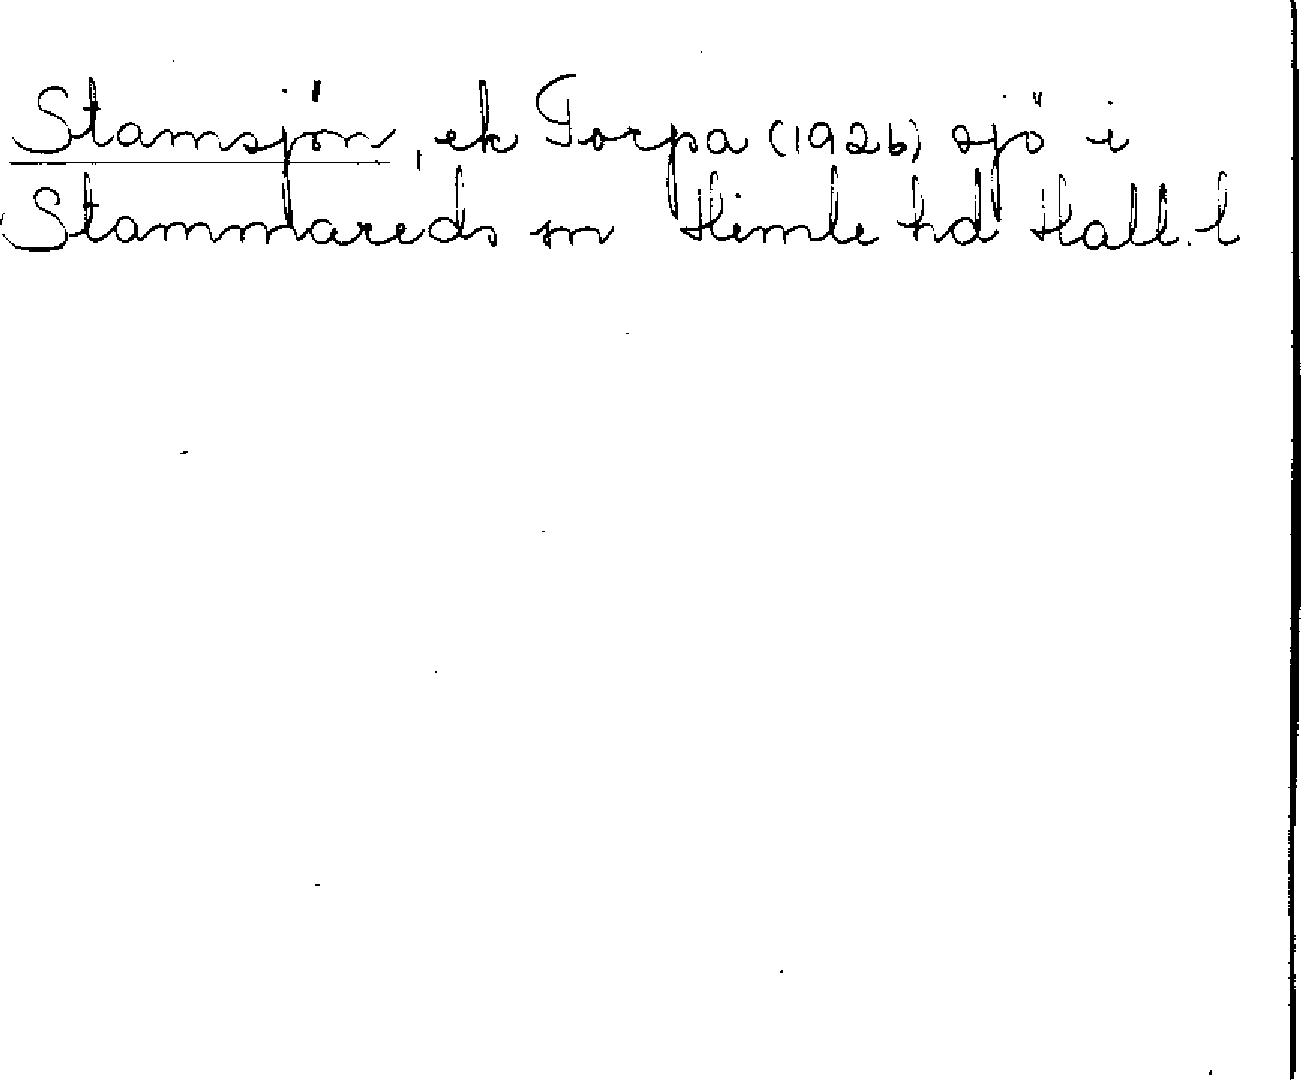 Stamsjön, ek Torpa (1926) sjö i
Stammareds sn Himle hd Hall. l